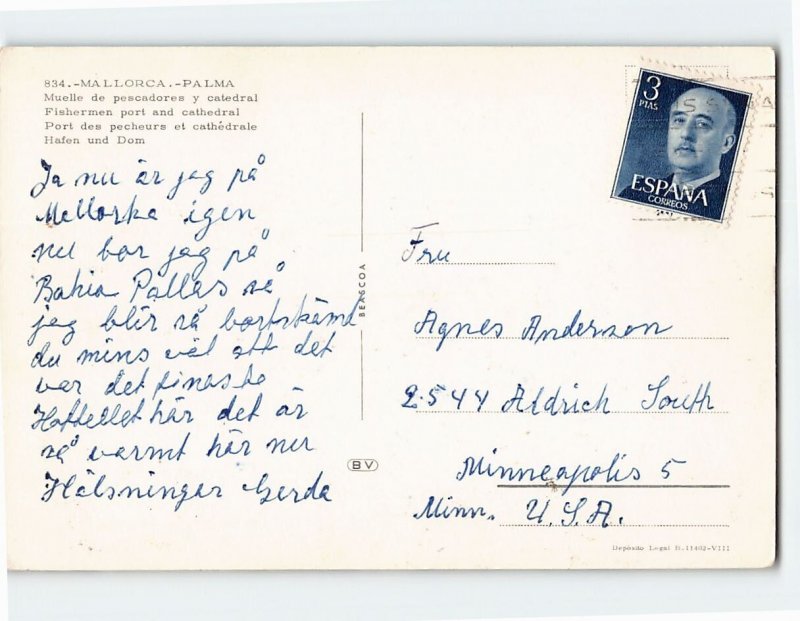 834.-MALLORCA.-PALMA
Muelle de pescadores y catedral
Fishermen port and cathedral
Port des pecheurs et cathédrale
Hafen und Dom
Ja nu är jag på
Mellorka igen
nu bor jag på
Bahia Pallas så
jag blir så bortskämd
du mins väl att det
var det finaste
Hottellet här det är
så varmt här nu
Hälsningar Gerda
BEASCOA
BV
3
PTAS
ESPAÑA
CORREOS
Fru
Agnes Anderson
2544 Aldrich South
Minneapolis 5
Minn. U.S.A.
Depósito Legal B.11402-VIII